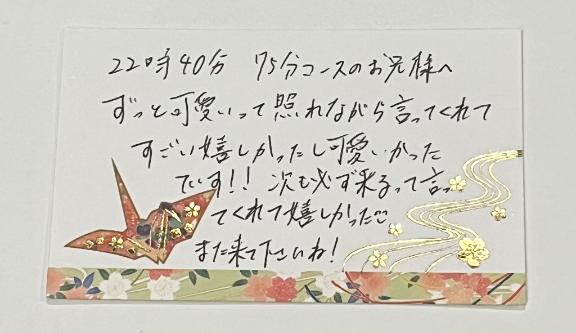 22時40分 75分コースのお兄様へ
ずっと可愛いって照れながら言ってくれて
すごい嬉しかったし可愛いかった
でいす!! 次も必ず来るって言っ
てくれて嬉しかった
また来て下さいね!